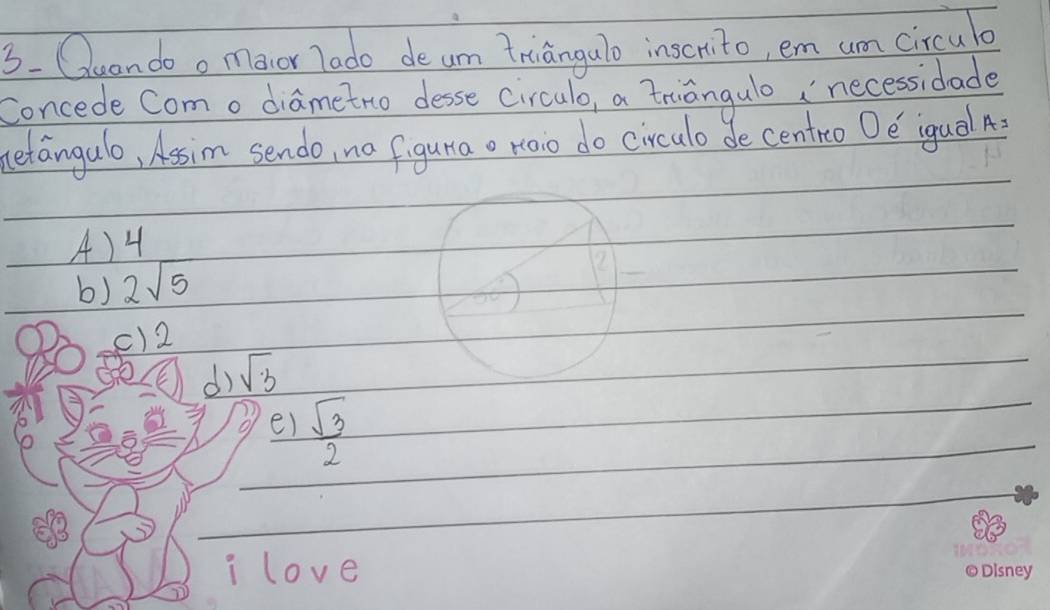 3- Quando o maior lado de um triângulo inscrito, em um circulo
Concede Com o diâmetro desse circulo, a triângulo i necessidade
retângulo, Assim sendo, na figura o raio do circulo de centro O é igual A:
A) 4
b) 2√5
c) 2
d) √3
e) √3/2
2
i love
© Disney